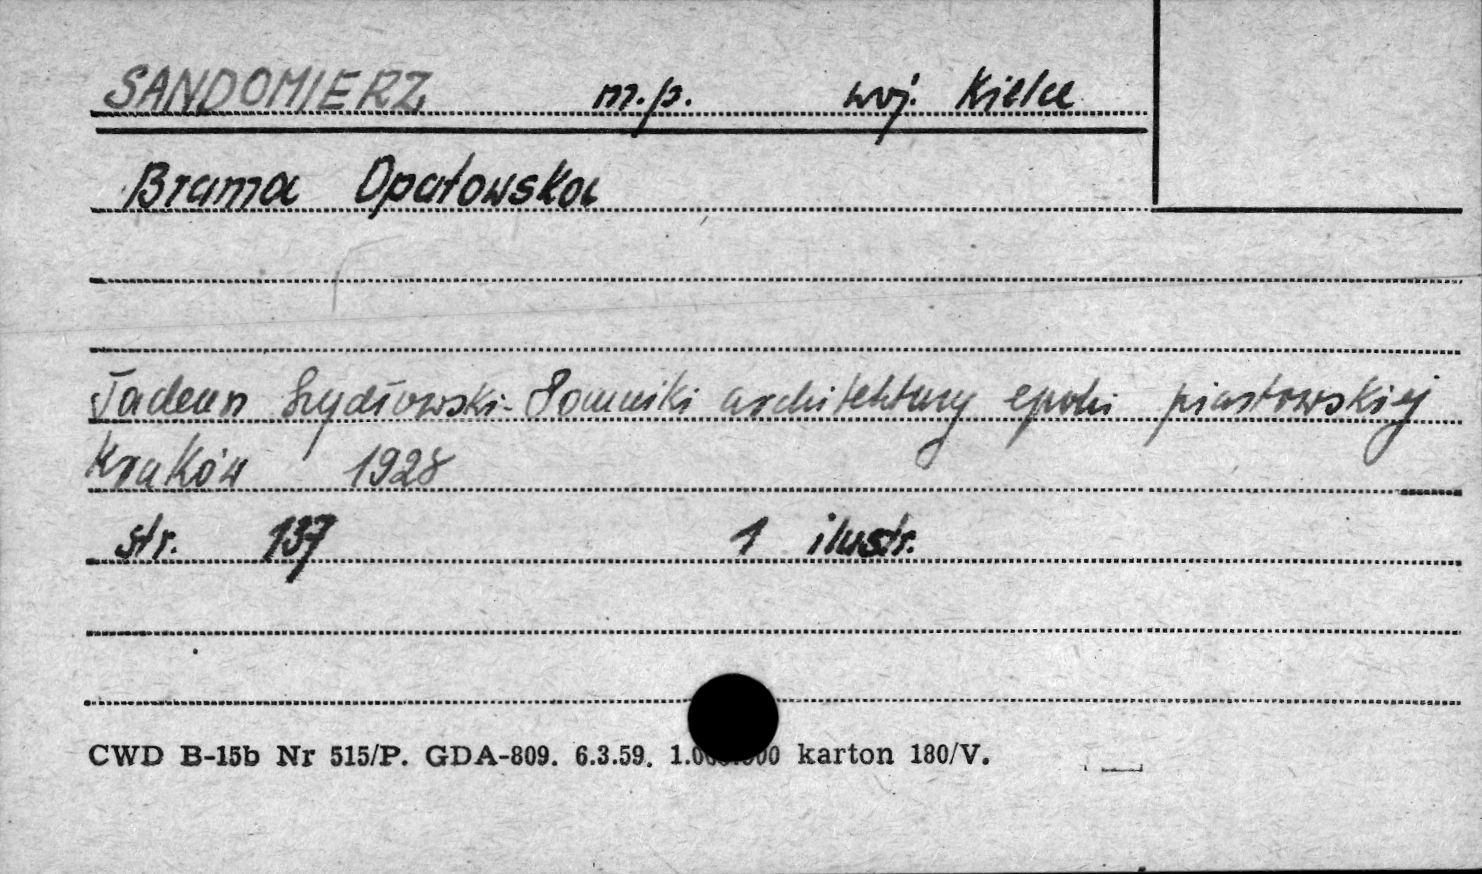 SANDOMIERZ m.p. woj. Kielce
Brama Opatowska
Tadeusz Szydłowski - Pomniki architektury epoki piastowskiej
Kraków 1928
str. 137 1 ilustr.
CWD B-15b Nr 515/P. GDA-809. 6.3.59. 1.000.000 karton 180/V.